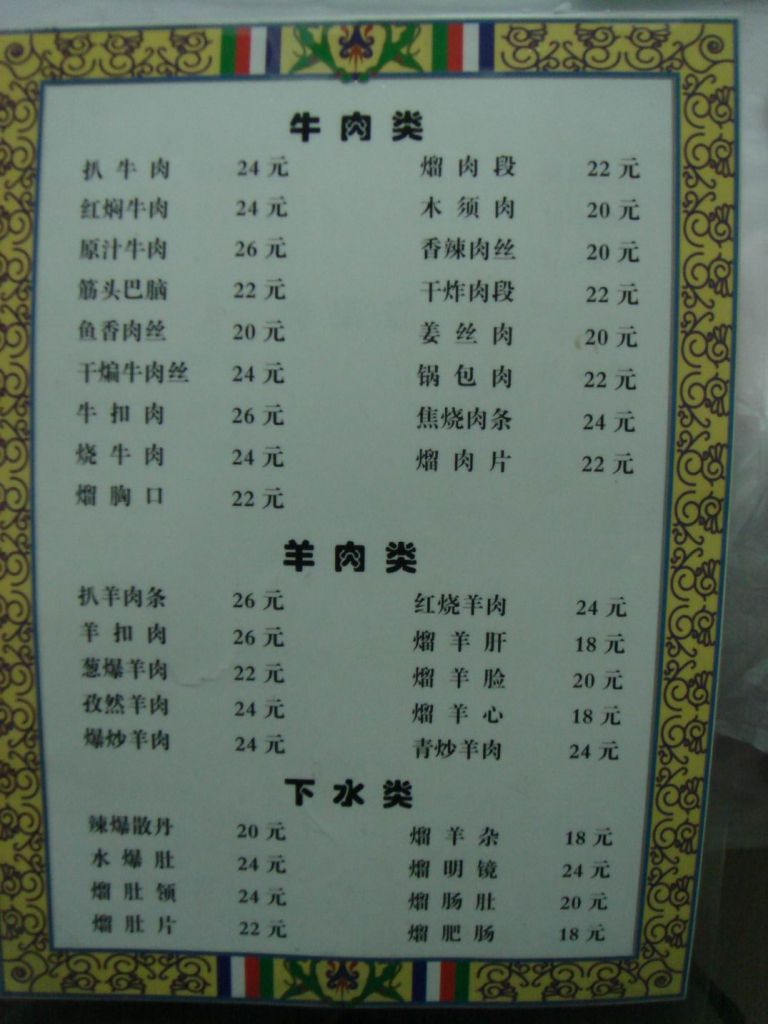 牛肉类
扒牛肉 24元 熘肉段 22元
红焖牛肉 24元 木须肉 20元
原汁牛肉 26元 香辣肉丝 20元
筋头巴脑 22元 干炸肉段 22元
鱼香肉丝 20元 姜丝肉 20元
干煸牛肉丝 24元 锅包肉 22元
牛扣肉 26元 焦烧肉条 24元
烧牛肉 24元 熘肉片 22元
熘胸口 22元
羊肉类
扒羊肉条 26元 红烧羊肉 24元
羊扣肉 26元 熘羊肝 18元
葱爆羊肉 22元 熘羊脸 20元
孜然羊肉 24元 熘羊心 18元
爆炒羊肉 24元 青炒羊肉 24元
下水类
辣爆散丹 20元 熘羊杂 18元
水爆肚 24元 熘明镜 24元
熘肚领 24元 熘肠肚 20元
熘肚片 22元 熘肥肠 18元